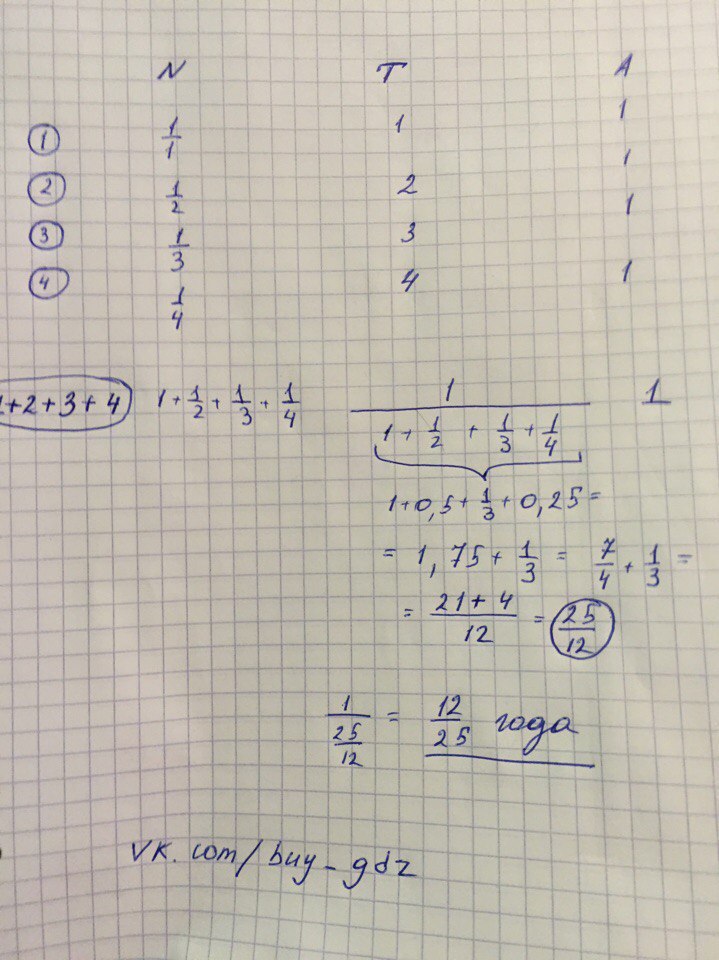 N T A
① 1/1 1 1
② 1/2 2 1
③ 1/3 3 1
④ 1/4 4 1
1+2+3+4 1+1/2+1/3+1/4 1/(1+1/2+1/3+1/4) 1
1+0,5+1/3+0,25=
= 1,75+1/3 = 7/4+1/3 =
= (21+4)/12 = 25/12
1/(25/12) = 12/25 года
vk.com/buy_gdz